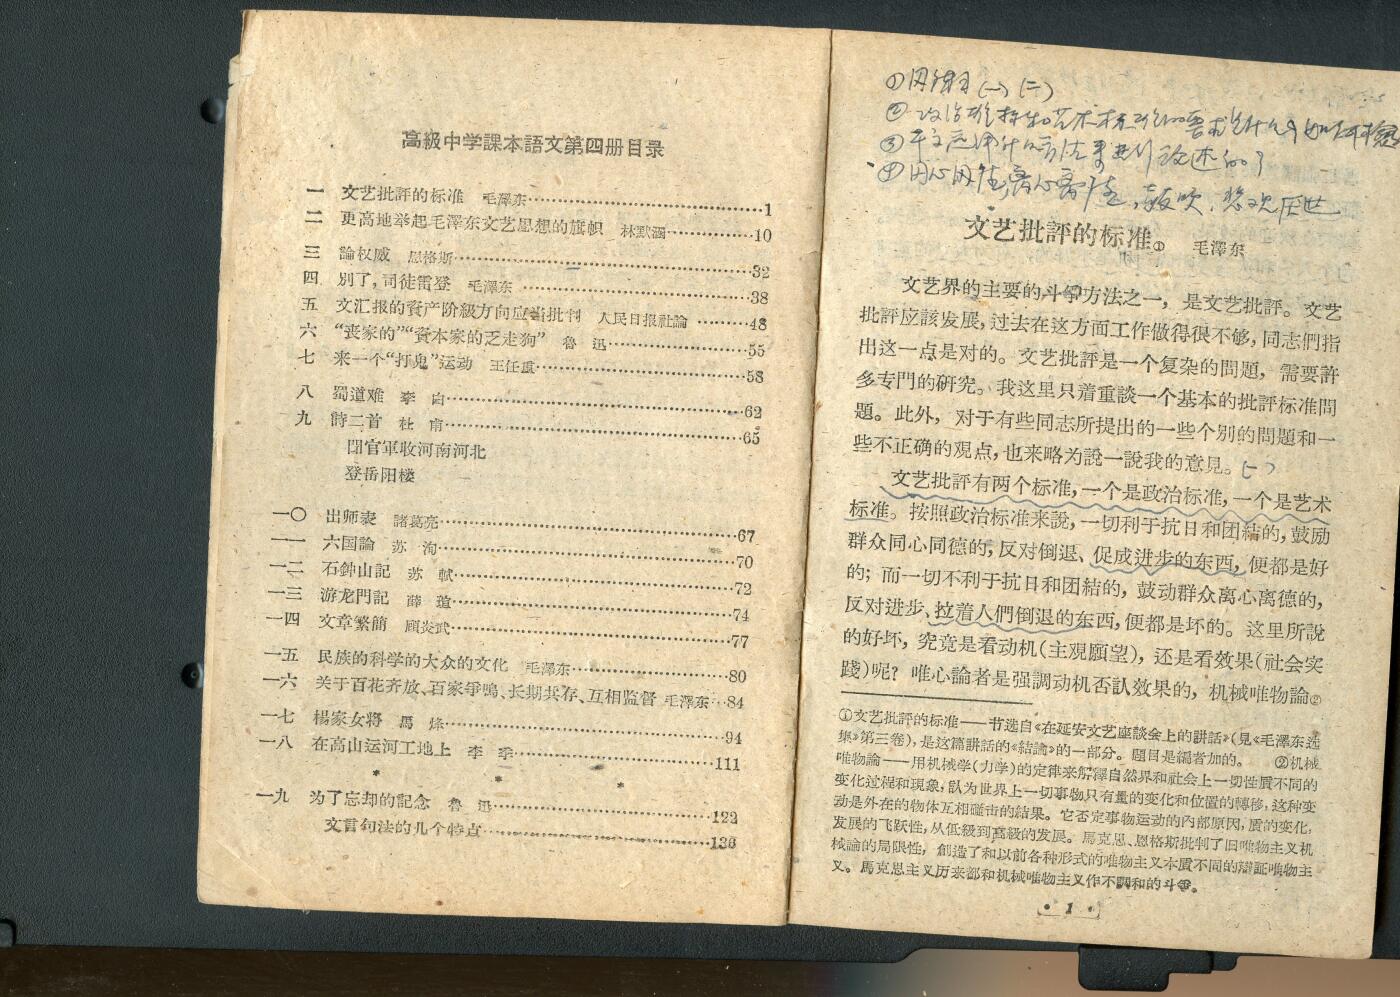 高級中学課本語文第四册目录
一 文艺批評的标准 毛澤东……1
二 更高地举起毛澤东文艺思想的旗帜 林默涵……10
三 論权威 恩格斯……32
四 別了，司徒雷登 毛澤东……38
五 文汇报的資产阶級方向应当批判 人民日报社論……48
六 “丧家的”“資本家的乏走狗” 魯 迅……55
七 来一个“打鬼”运动 王任重……58
八 蜀道难 李 白……62
九 詩二首 杜 甫……65
聞官軍收河南河北
登岳阳楼
一〇 出师表 諸葛亮……67
一一 六国論 苏 洵……70
一二 石鈡山記 苏 軾……72
一三 游龙門記 薛 瑄……74
一四 文章繁簡 顧炎武……77
一五 民族的科学的大众的文化 毛澤东……80
一六 关于百花齐放、百家爭鳴、长期共存、互相监督 毛澤东…84
一七 楊家女将 馬 烽……94
一八 在高山运河工地上 李 季……111
* * *
一九 为了忘却的記念 魯 迅……122
文言句法的几个特点……136
文艺批評的标准① 毛澤东
文艺界的主要的斗爭方法之一，是文艺批評。文艺
批評应該发展，过去在这方面工作做得很不够，同志們指
出这一点是对的。文艺批評是一个复杂的問題，需要許
多专門的研究。我这里只着重談一个基本的批評标准問
題。此外，对于有些同志所提出的一些个別的問題和一
些不正确的观点，也来略为說一說我的意見。
文艺批評有两个标准，一个是政治标准，一个是艺术
标准。按照政治标准来說，一切利于抗日和团結的，鼓励
群众同心同德的，反对倒退、促成进步的东西，便都是好
的；而一切不利于抗日和团結的，鼓动群众离心离德的，
反对进步、拉着人們倒退的东西，便都是坏的。这里所說
的好坏，究竟是看动机(主观願望)，还是看效果(社会实
踐)呢？唯心論者是强調动机否認效果的，机械唯物論②
①文艺批評的标准——节选自《在延安文艺座談会上的講話》(見《毛澤东选
集》第三卷)，是这篇講話的《結論》的一部分。題目是編者加的。 ②机械
唯物論——用机械学(力学)的定律来解釋自然界和社会上一切性质不同的
变化过程和現象，認为世界上一切事物只有量的变化和位置的轉移，这种变
动是外在的物体互相碰击的結果。它否定事物运动的內部原因，质的变化，
发展的飞跃性，从低級到高級的发展。馬克思、恩格斯批判了旧唯物主义机
械論的局限性，創造了和以前各种形式的唯物主义本质不同的辯証唯物主
义。馬克思主义历来都和机械唯物主义作不調和的斗爭。
· 1 ·